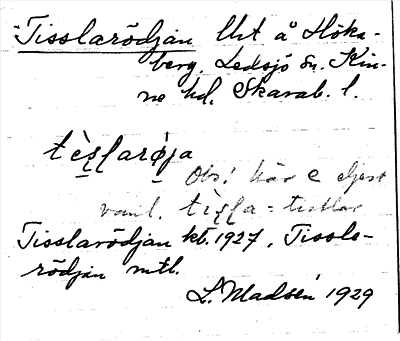 Tisslarödjan lht å Höks-
berg, Ledsjö sn. Kin-
ne hd. Skarab. l.
tès̩l̩arø̀ja
Obs! här e eljest
vanl. tìs̩l̩a = tistlar
Tisslarödjan kb. 1927, Tissla-
rödjan mtl.
L. Madsén 1929